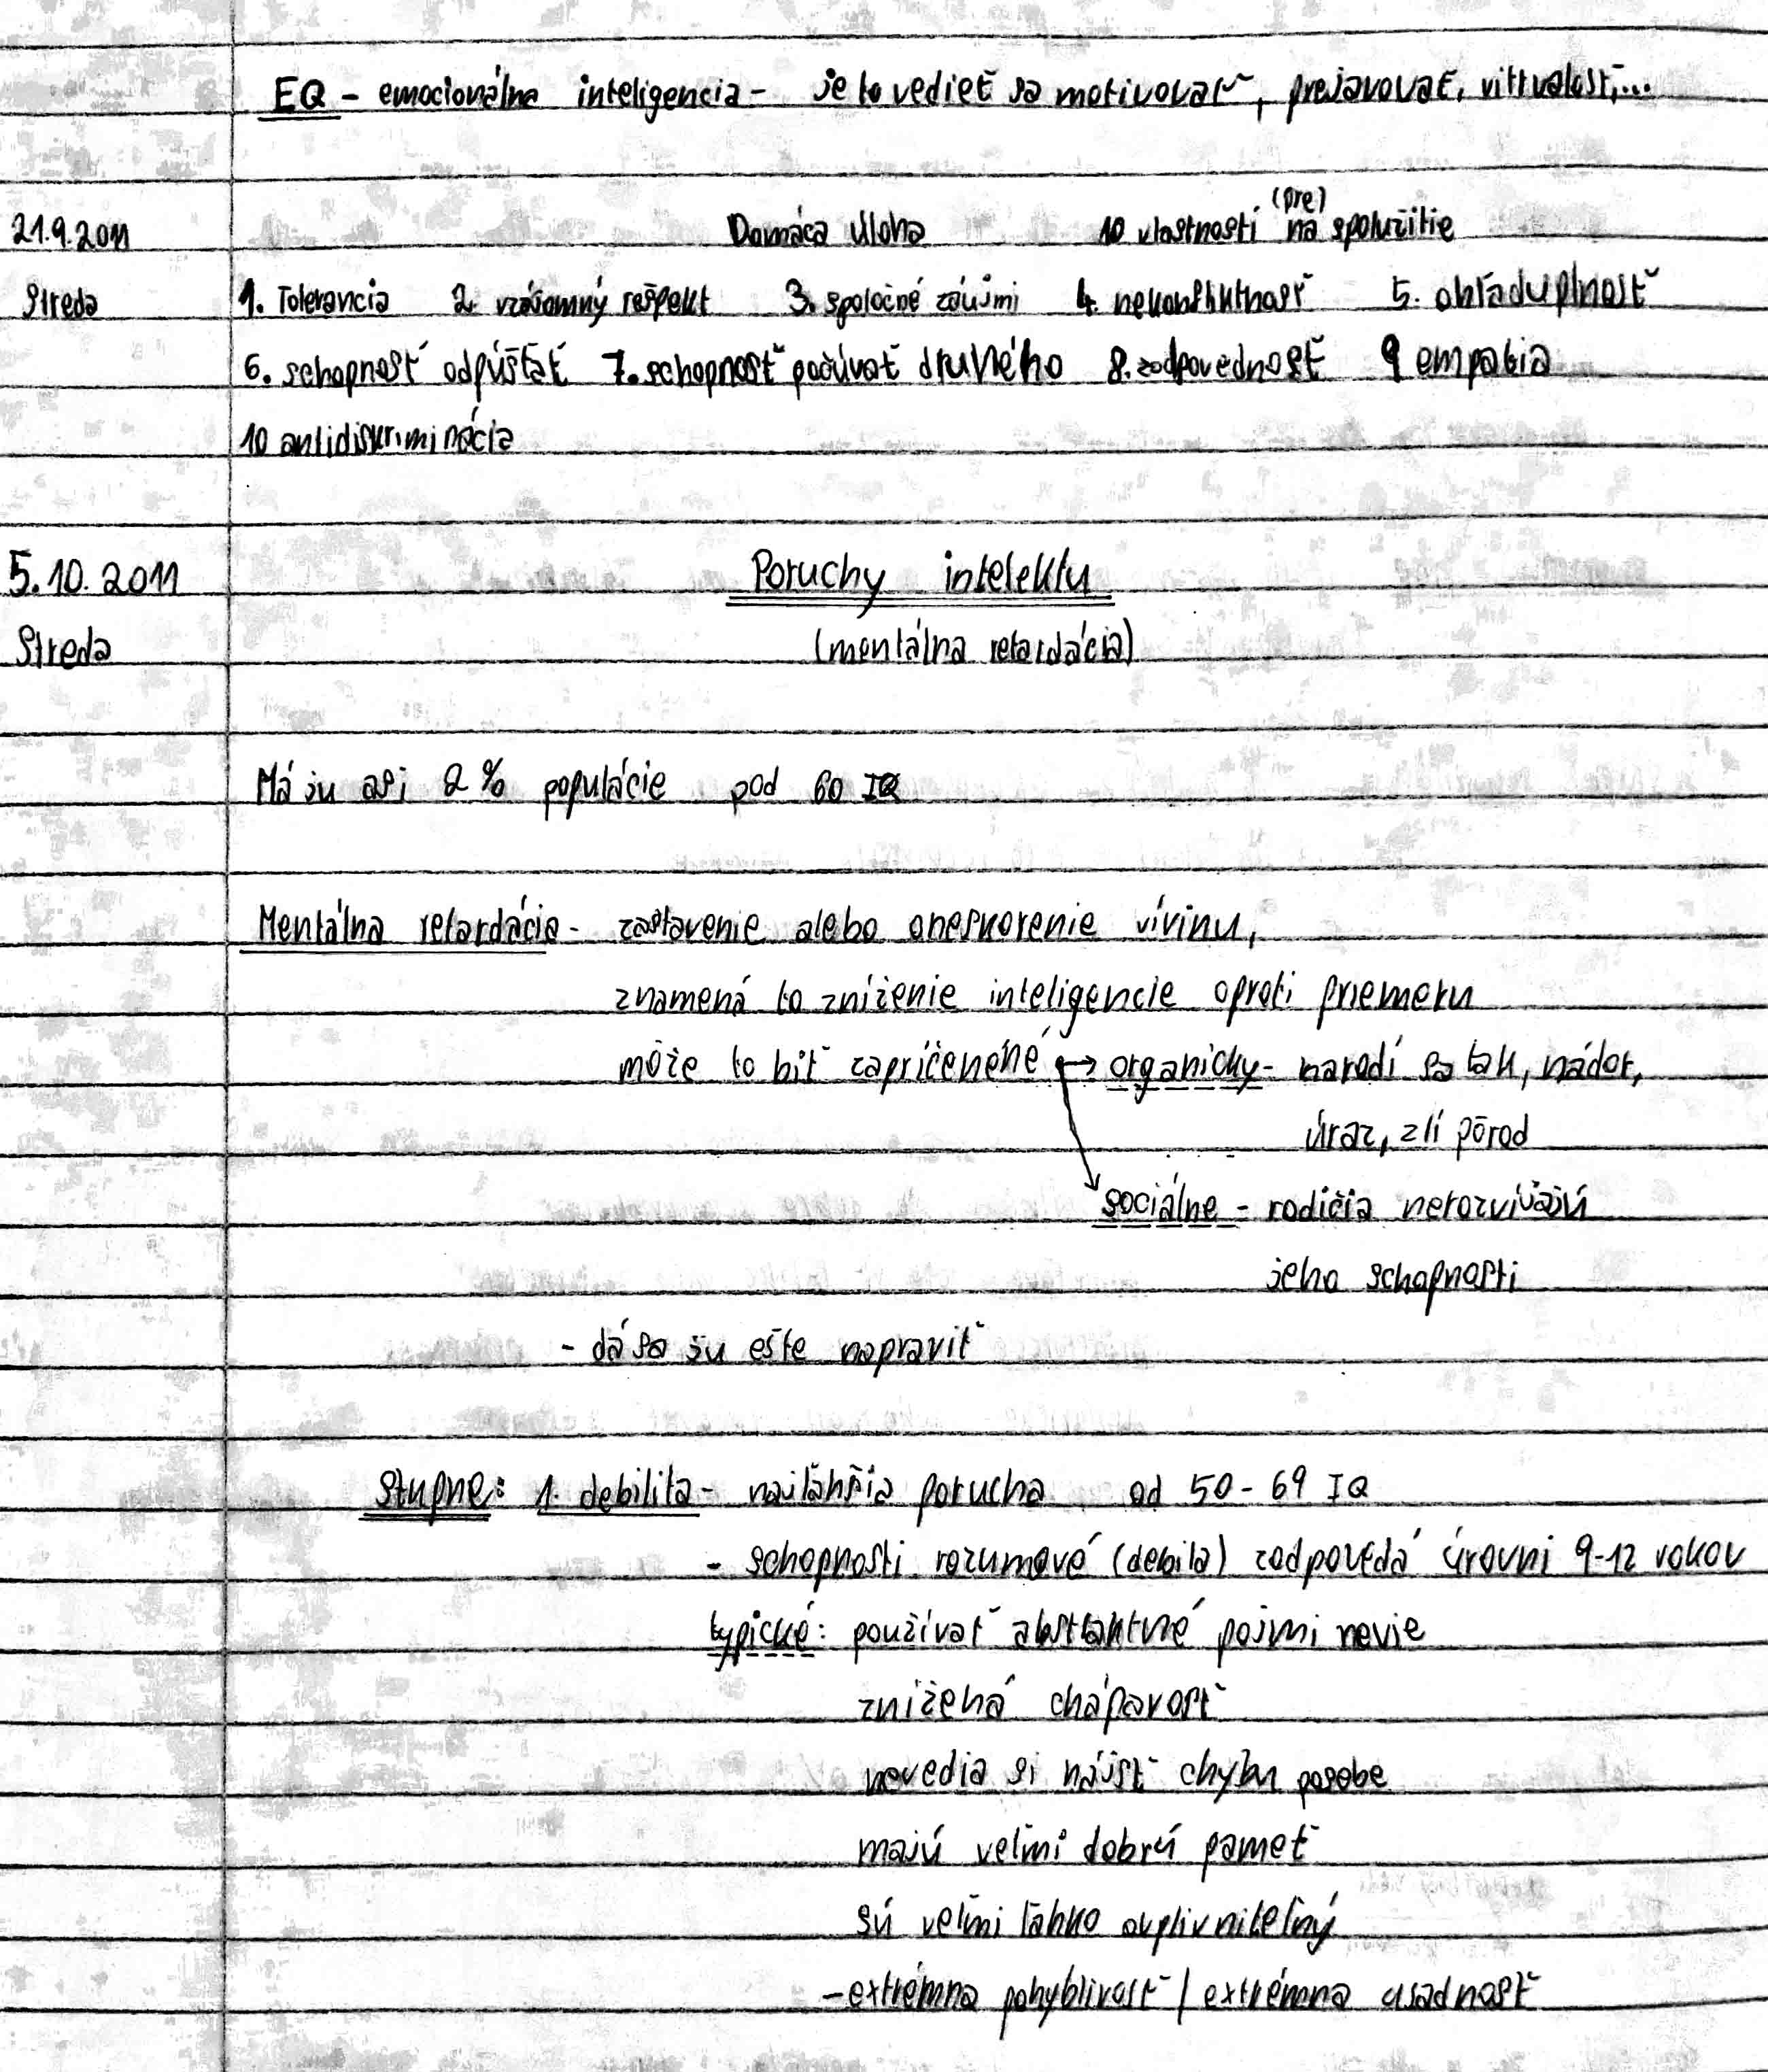 EQ - emocionálna inteligencia - je to vedieť sa motivovať, prejavovať, vitrvalosť,...
21.9.2011 Domáca úloha 10 vlastností (pre) na spolužitie
Streda 1. Tolerancia 2. vzájomný rešpekt 3. spoločné záujmi 4. nekonfliktnosť 5. ohľaduplnosť
6. schopnosť odpúšťať 7. schopnosť počúvať druhého 8. zodpovednosť 9 empatia
10 antidiskriminácia
5.10.2011 Poruchy intelektu
Streda (mentálna retardácia)
Má ju asi 2% populácie pod 60 IQ
Mentálna retardácia - zastavenie alebo oneskorenie vívinu,
znamená to zníženie inteligencie oproti priemeru
môže to biť zapríčenéné → organicky - narodí sa tak, nádor,
úraz, zlí pôrod
sociálne - rodičia nerozvíjajú
jeho schopnosti
- dá sa ju ešte napraviť
Stupne: 1. debilita - najľahšia porucha od 50 - 69 IQ
- schopnosti rozumové (debila) zodpovedá úrovni 9-12 rokov
typické: používať abstraktné pojmi nevie
znížená chápavosť
nevedia si nájsť chybu posobe
majú veľmi dobrú pameť
sú veľmi ľahko ovplivniteľný
- extrémna pohyblivosť / extrémna usadnosť